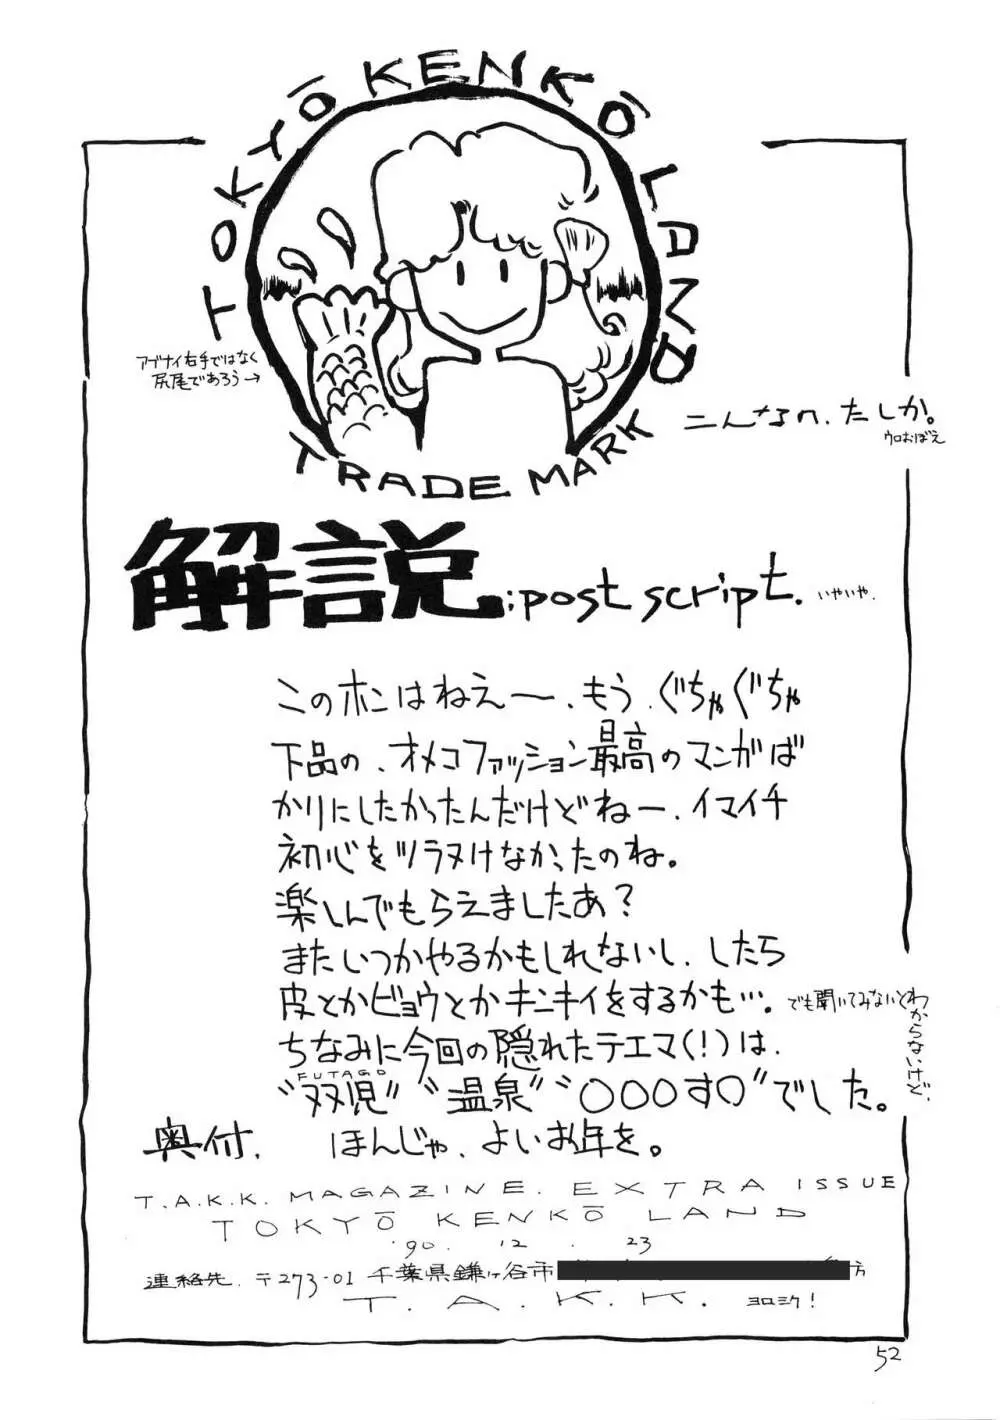 TOKYŌ KENKŌ LAND
アブナイ右手ではなく
尻尾であろう→
TRADE MARK
こんなの、たしか。
ウロおぼえ
解説;post script.
いやいや.
このホンはねえー、もう、ぐちゃぐちゃ
下品の、オメコファッション最高のマンガば
かりにしたかったんだけどねー、イマイチ
初心をツラヌけなかったのね。
楽しんでもらえましたあ?
またいつかやるかもしれないし、したら
皮とかビョウとかキンキイをするかも…。
でも聞いてみないとわからないけど、
ちなみに今回の隠れたテエマ(!)は、
FUTAGO
“双児”“温泉”“〇〇〇す〇”でした。
奥付. ほんじゃ、よいお年を。
T.A.K.K. MAGAZINE. EXTRA ISSUE
TOKYŌ KENKŌ LAND
'90. 12. 23
連絡先. 〒273-01 千葉県鎌ヶ谷市
方
T.A.K.K. ヨロシク!
52